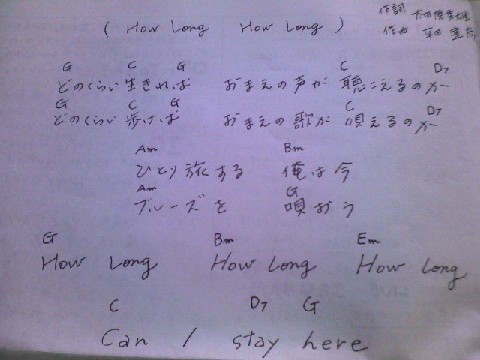 ( How Long How Long )
作詞
作曲
G C G C D7
どのくらい 生きれば おまえの声が 聴こえるのか
G C G C D7
どのくらい 歩けば おまえの歌が 唄えるのか
Am Bm
ひとり旅する 俺は今
Am G
ブルーズを 唄おう
G Bm Em
How Long How Long How Long
C D7 G
Can I stay here